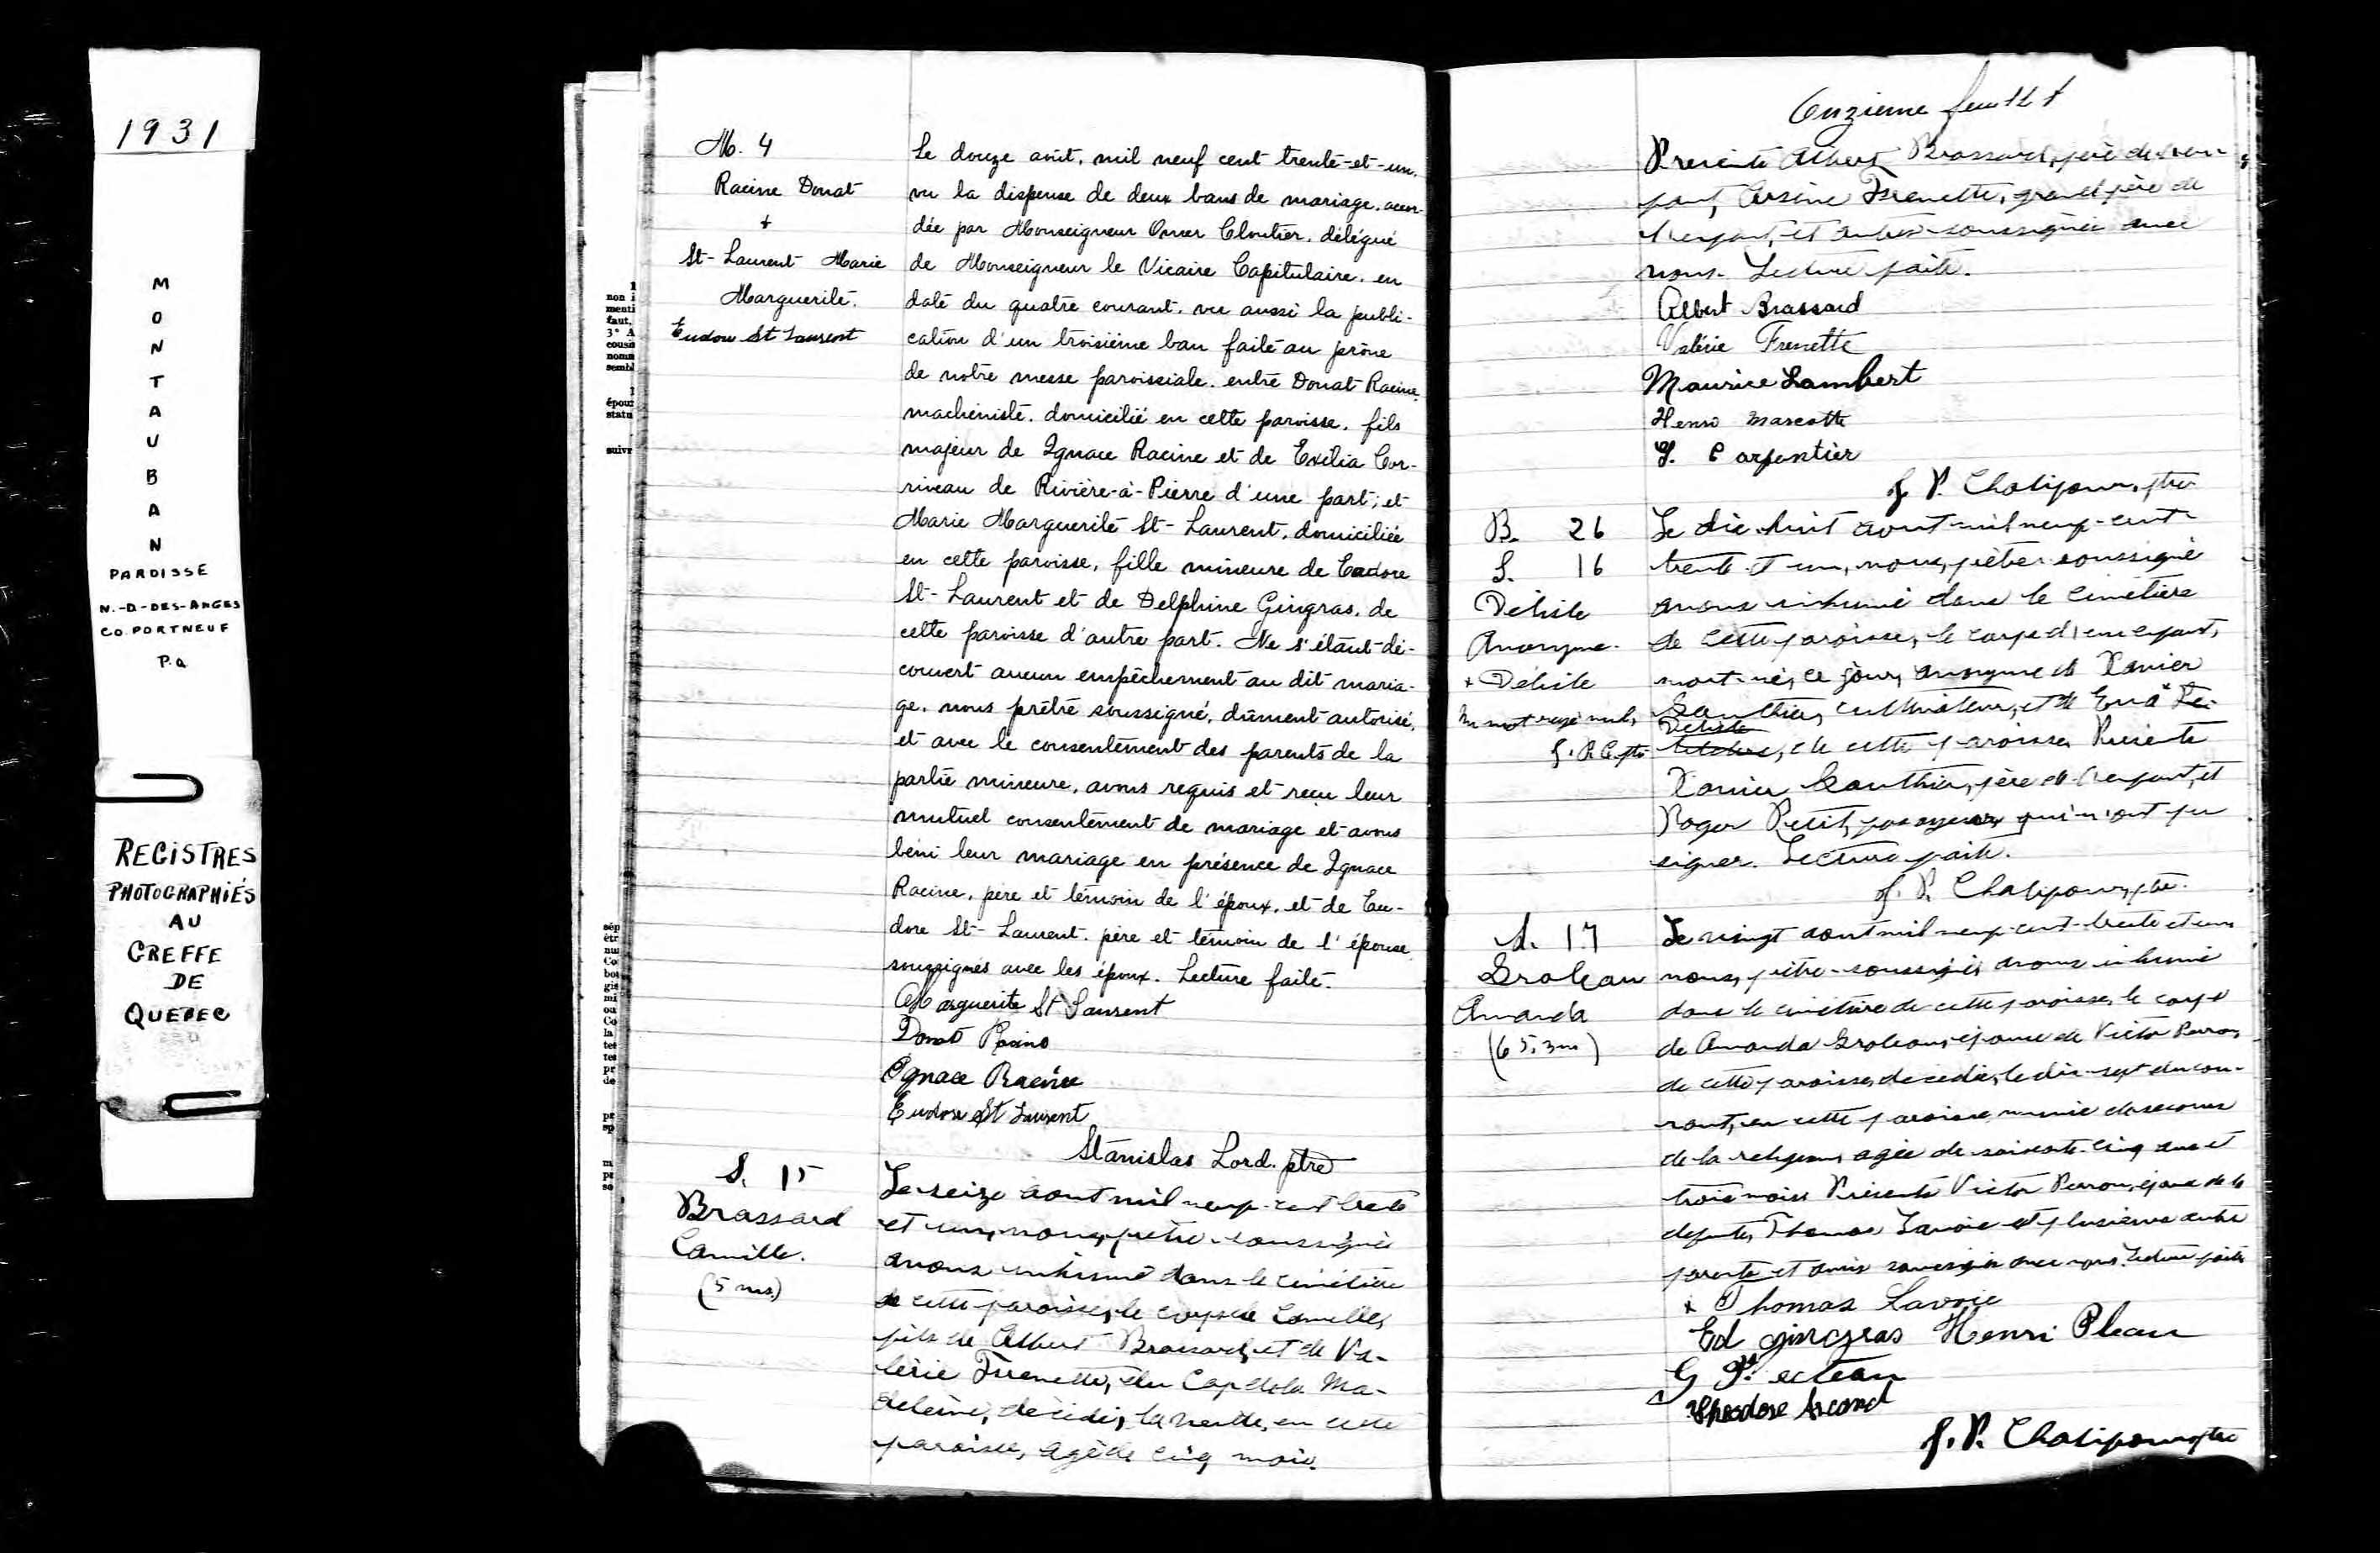 1931
MONTAUBAN
PAROISSE
N.-D-DES-ANGES
CO. PORTNEUF
P.Q
REGISTRES
PHOTOGRAPHIÉS
AU
GREFFE
DE
QUEBEC
M. 4
Racine Donat
+
St-Laurent Marie
Marguerite.
Eudore St Laurent
Le douze août, mil neuf cent trente-et-un,
vu la dispense de deux bans de mariage, accor-
dée par Monseigneur Omer Cloutier, délégué
de Monseigneur le Vicaire Capitulaire, en
date du quatre courant, vu aussi la publi-
cation d'un troisième ban faite au prône
de notre messe paroissiale, entre Donat Racine,
machiniste, domicilié en cette paroisse, fils
majeur de Ignace Racine et de Exilia Cor-
riveau de Rivière-à-Pierre d'une part; et
Marie Marguerite St-Laurent, domiciliée
en cette paroisse, fille mineure de Eudore
St-Laurent et de Delphine Gingras, de
cette paroisse d'autre part. Ne s'étant dé-
couvert aucun empêchement au dit maria-
ge, nous prêtre soussigné, dûment autorisé,
et avec le consentement des parents de la
partie mineure, avons requis et reçu leur
mutuel consentement de mariage et avons
béni leur mariage en présence de Ignace
Racine, père et témoin de l'époux, et de Eu-
dore St-Laurent, père et témoin de l'épouse
soussignés avec les époux. Lecture faite.
Marguerite St Laurent
Donat Racine
Ignace Racine
Eudore St Laurent
Stanislas Lord. ptre
S. 15
Brassard
Camille.
(5 ms.)
Le seize aout mil neuf-cent trente
et un, nous, prêtre-soussigné
avons inhumé dans le cimétière
de cette paroisse, le corps de Camille,
fils de Albert Brassard, et de Va-
lérie Frenette, du Cap de la Ma-
deleine, décédé, la veille, en cette
paroisse, agé de cinq mois.
Onzieme feuillet
Présents Albert Brassard, père de l'en-
fant, Arsène Frenette, grand père de
l'enfant, et autres soussignés avec
nous. Lecture faite.
Albert Brassard
Valérie Frenette
Maurice Lambert
Henri Marcotte
Carpentier
ptre
B. 26
S. 16
Delisle
Anonyme.
+ Delisle
Un mot rayé nul,
Le dix-huit aout mil neuf-cent-
trente et un, nous, prêtre-soussigné
avons inhumé dans le cimétière
de cette paroisse, le corps d'un enfant,
mort-né, ce jour, anonyme de Xavier
Gauthier, cultivateur, et de
Delisle
de cette paroisse. Présents
Xavier Gauthier, père de l'enfant, et
Roger Petit, qui n'ont pu
signer. Lecture faite.
ptre.
S. 17
Groleau
Amanda
(65, 3m)
Le vingt aout mil neuf-cent-trente et un
nous, prêtre-soussigné avons inhumé
dans le cimétière de cette paroisse, le corps
de Amanda Groleau, épouse de Victor Perron,
de cette paroisse, décédée, le dix-sept du cou-
rant, en cette paroisse munie des secours
de la religion, agée de soixante-cinq ans et
trois mois. Présents Victor Perron, époux de la
defunte, Thomas Lavoie et plusieurs autres
parents et amis soussignés avec nous. Lecture faite
x Thomas Lavoie
Ed gingras Henri Pleau
Theodore
ptre